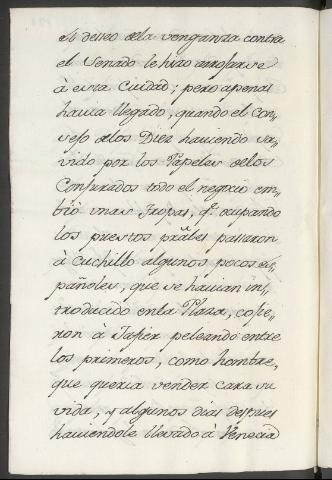 el deseo dela venganza contra
el Senado le hizo arrojarse
à esta Ciudad; pero apenas
havia llegado, quando el Con„
sejo delos Diez haviendo sa„
vido por los Papeles delos
Conjurados todo el negozio em„
bió unas Tropas, q.e ocupando
los puestos prâles passaron
à Cuchillo algunos pocos es„
pañoles, que se havian in„
troducido enla Plaza, cojie„
ron à Jafier peleando entre
los primeros, como hombre,
que queria vender cara su
vida, y algunos dias despues
haviendole llevado à Venecia